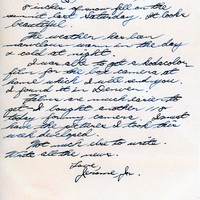 8 inches of snow fell on the
summit last Saturday. It looks
beautiful.
The weather has been
marvelous warm in the day
& cold at night.
I was able to get a kodacolor
film for the camera at
home which I will send you.
I found it in Denver.
Films are much easier to
get. I bought another
today for my camera. I must
have the pictures I took this
week developed.
Not much else to write.
Write all the news.
Love
Jerome Jr.